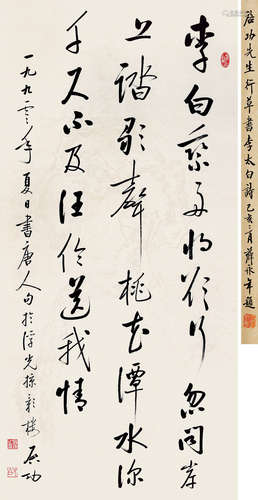 李白乘舟将欲行忽闻岸
上踏歌声桃花潭水深
千尺不及汪伦送我情
一九九零年夏日书唐人句於浮光掠影楼启功
启功先生行草书李太白诗己亥二月薛永年题